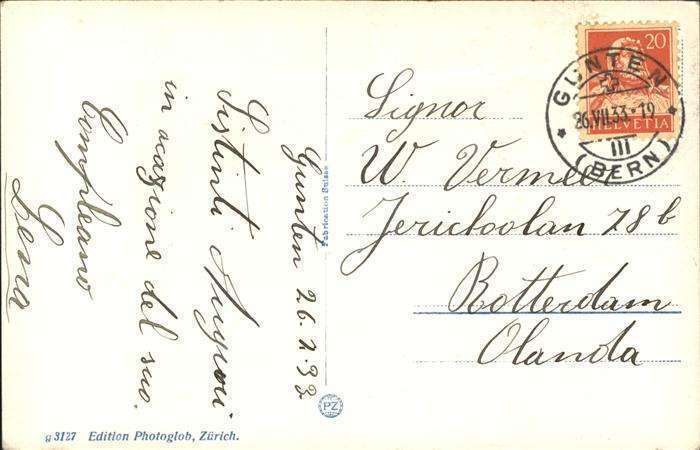 Gunten 26.7.33
Distinti Auguri
in ocazione del suo
Compleano
Lena
Signor
W. Vermeer
Jericholaan 78 b
Rotterdam
Olanda
20
HELVETIA
GUNTEN
26.VII.33-19
III
(BERN)
Fabrication Suisse
PZ
g 3127 Edition Photoglob, Zürich.